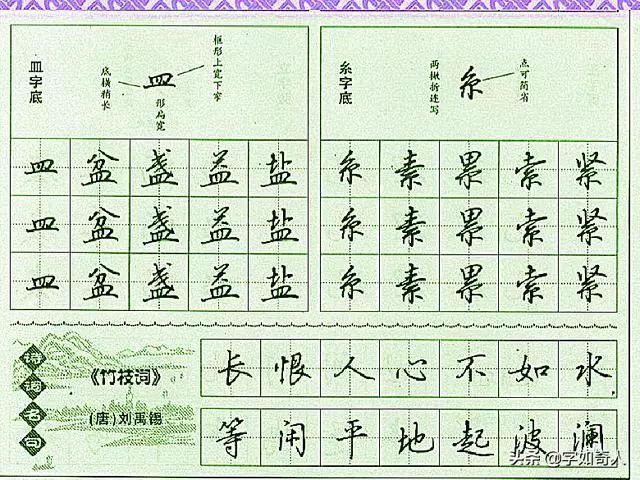 皿字底
底横稍长
皿
形扁宽
框形上宽下窄
皿 盆 盏 益 盐
皿 盆 盏 益 盐
皿 盆 盏 益 盐
糸字底
两撇折连写
糸
点可简省
糸 素 累 索 紧
糸 素 累 索 紧
糸 素 累 索 紧
诗词名句
《竹枝词》
(唐)刘禹锡
长恨人心不如水,
等闲平地起波澜
头条 @字如奇人